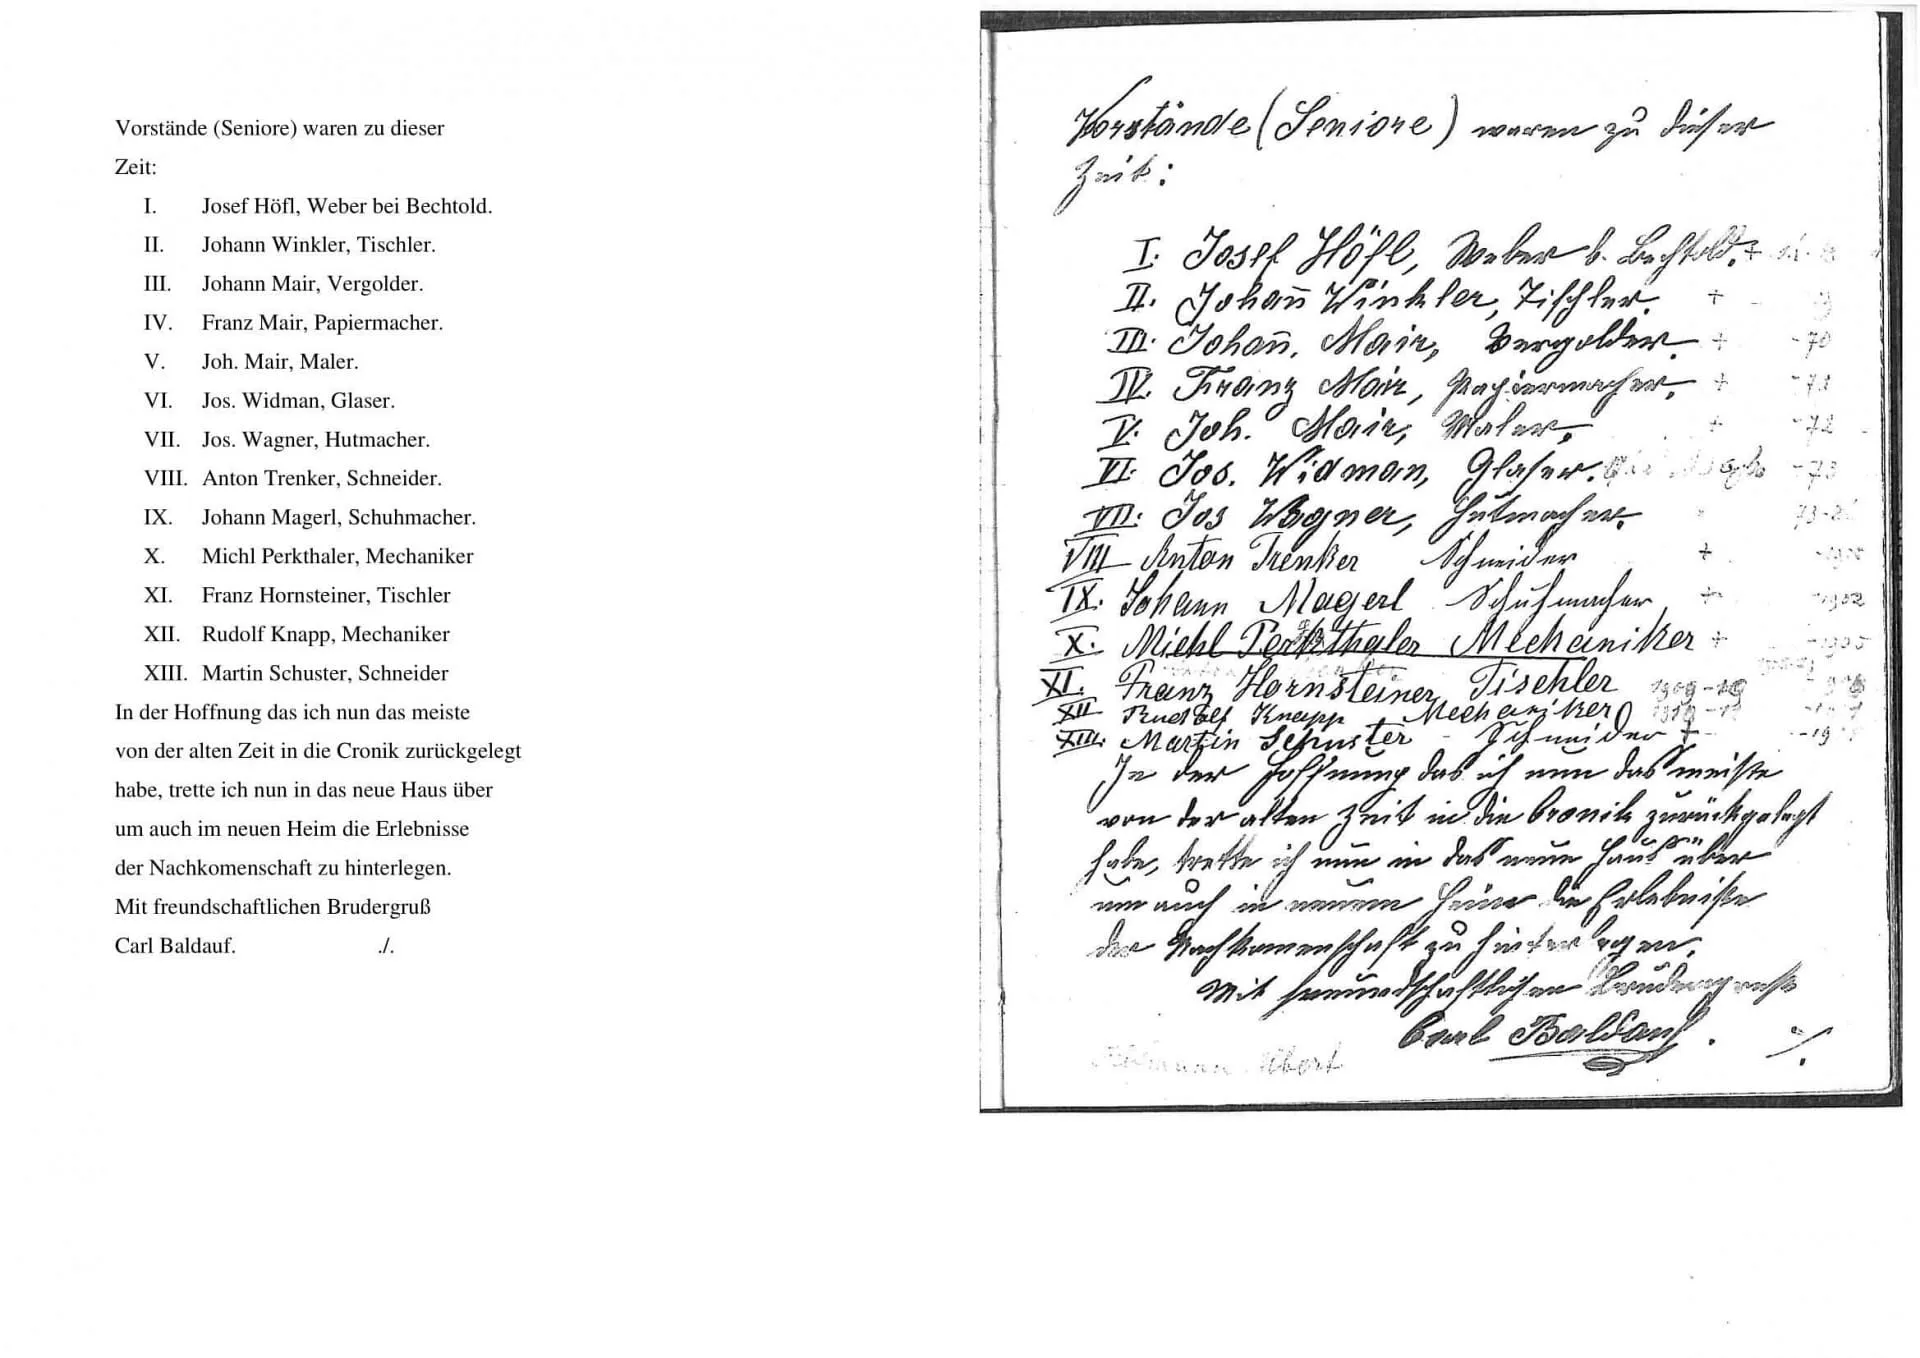 Vorstände (Seniore) waren zu dieser
Zeit:
I. Josef Höfl, Weber bei Bechtold.
II. Johann Winkler, Tischler.
III. Johann Mair, Vergolder.
IV. Franz Mair, Papiermacher.
V. Joh. Mair, Maler.
VI. Jos. Widman, Glaser.
VII. Jos. Wagner, Hutmacher.
VIII. Anton Trenker, Schneider.
IX. Johann Magerl, Schuhmacher.
X. Michl Perkthaler, Mechaniker
XI. Franz Hornsteiner, Tischler
XII. Rudolf Knapp, Mechaniker
XIII. Martin Schuster, Schneider
In der Hoffnung das ich nun das meiste
von der alten Zeit in die Cronik zurückgelegt
habe, trette ich nun in das neue Haus über
um auch im neuen Heim die Erlebnisse
der Nachkomenschaft zu hinterlegen.
Mit freundschaftlichen Brudergruß
Carl Baldauf. ./.
Vorstände (Seniore) waren zu dieser
Zeit:
I. Josef Höfl, Weber b. Bechtold. +
II. Johan̄ Winkler, Tischler. +
III. Johan̄. Mair, Vergolder. + -70
IV. Franz Mair, Papiermacher. + -71
V. Joh. Mair, Maler. + -72
VI. Jos. Widman, Glaser. -73
VII. Jos Wagner, Hutmacher.
VIII Anton Trenker Schneider +
IX. Johann Magerl Schuhmacher, + -1902
X. Michl Perkthaler Mechaniker + -1905
XI. Franz Hornsteiner, Tischler
XII Rudolf Knapp Mechaniker
XIII. Martin Schuster - Schneider +
In der Hoffnung das ich nun das meiste
von der alten Zeit in die Cronik zurückgelegt
habe, trette ich nun in das neue Haus über
um auch in neuem Heime die Erlebniße
der Nachkomenschaft zu hinterlegen.
Mit freundschaftlichen Brudergruß
Carl Baldauf. ./.